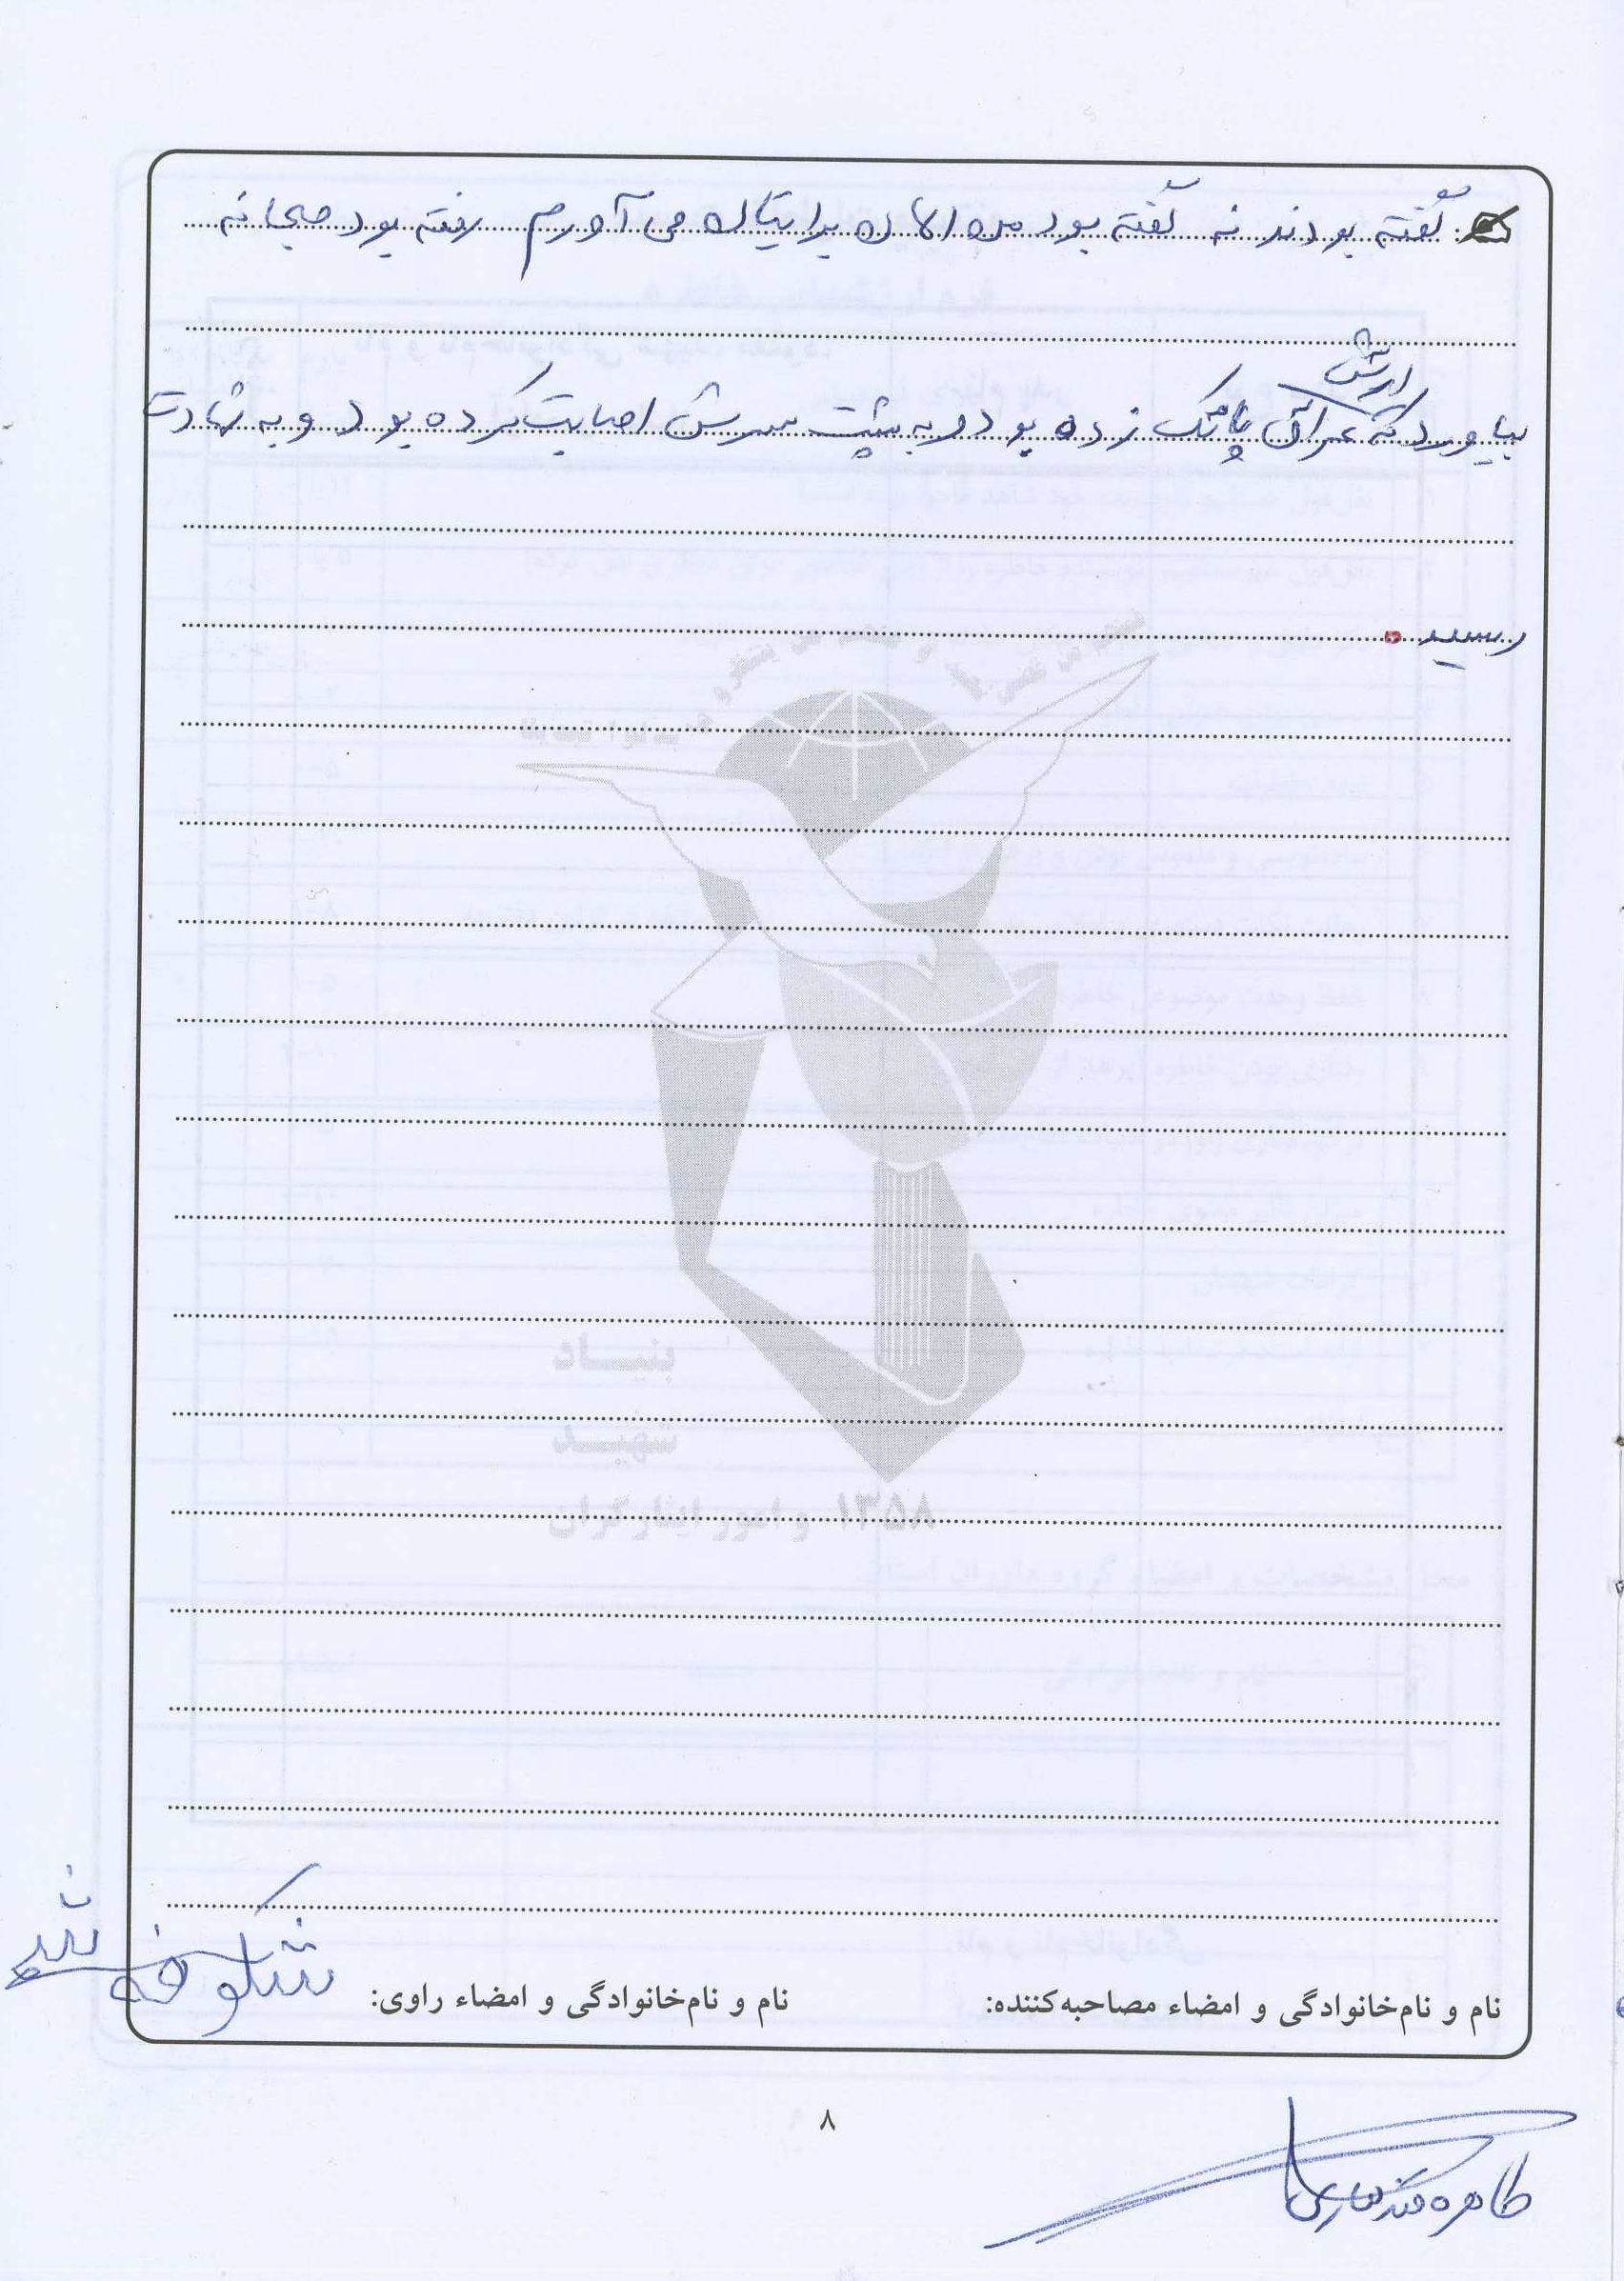 گفته بودند نه گفته بود من الان برایتان می آورم رفته بود صبحانه
ارتش
بیاورد که عراق با تک زده بود و به پشت سرش اصابت کرده بود و به شهادت
رسید.
بنیاد
شهید
و امور ایثارگران
۱۳۵۸
نام و نام‌خانوادگی و امضاء مصاحبه‌کننده:
نام و نام‌خانوادگی و امضاء راوی:
شکوفه
۸
طاهره